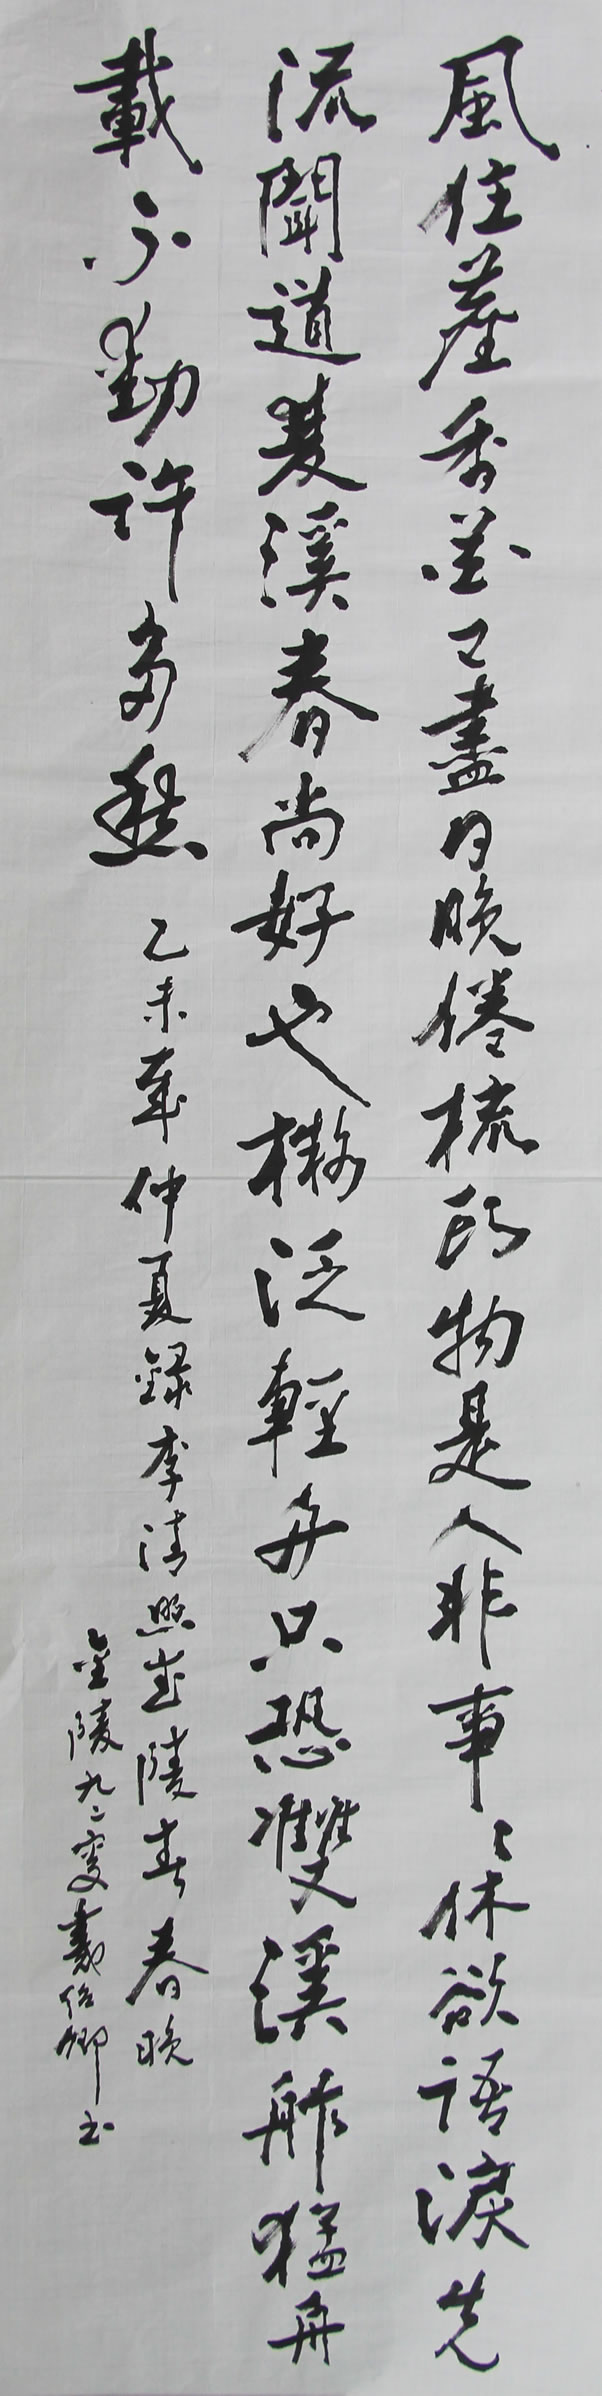 風住塵香花已盡日晚倦梳頭物是人非事〻休欲語淚先
流聞道雙溪春尚好也擬泛輕舟只恐雙溪舴艋舟
載不動許多愁
乙未年仲夏錄李清照武陵春春晚
金陵九二叟戴 卿书